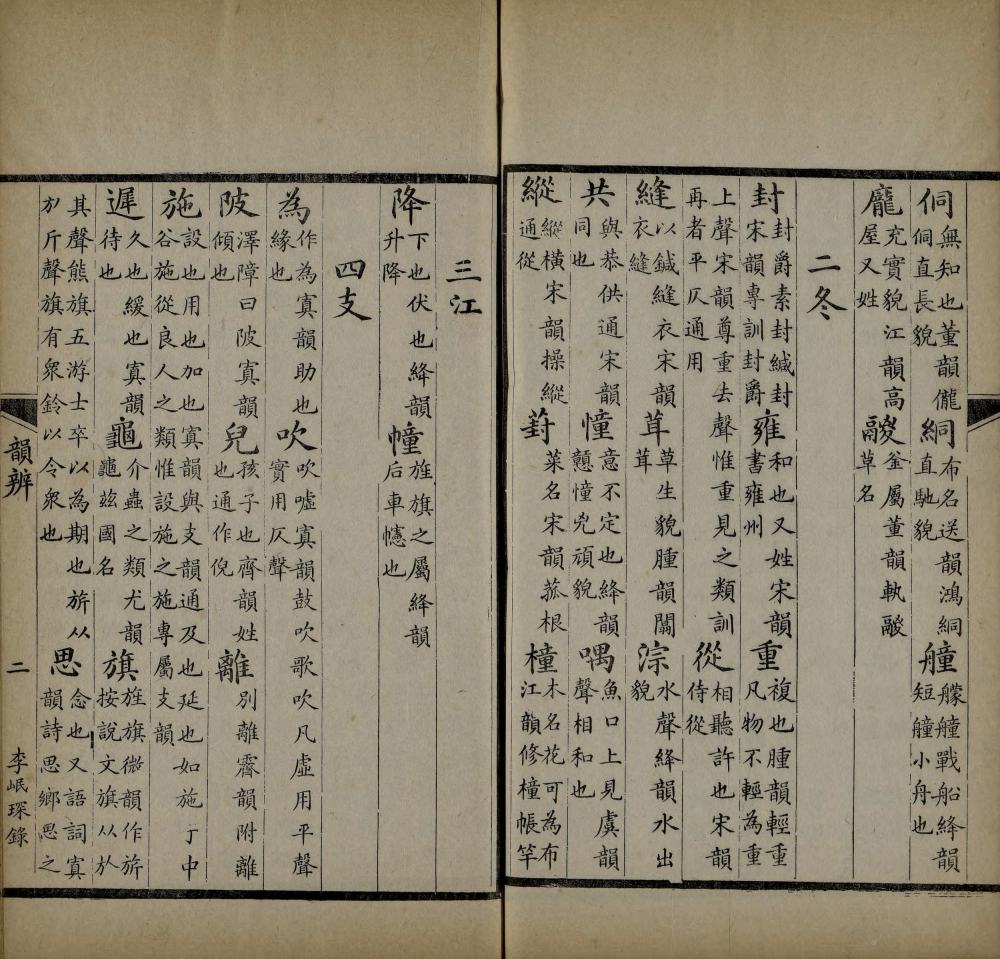 侗無知也董韻儱侗直長貌絧布名送韻鴻絧直馳貌艟艨艟戰船絳韻短艟小舟也
龐充實貌江韻高屋又姓鬷釜屬董韻執鬷草名
二冬
封封爵素封緘封宋韻專訓封爵雍和也又姓宋韻書雍州重複也腫韻輕重凡物不輕為重
上聲宋韻尊重去聲惟重見之類訓再者平仄通用從相聽許也宋韻侍從
縫以鍼縫衣宋韻衣縫茸草生貌腫韻闒茸淙水聲絳韻水出貌
共與恭供通宋韻同也憧意不定也絳韻戇憧兇頑貌喁魚口上見虞韻聲相和也
縱縱橫宋韻操縱通從葑菜名宋韻菰根橦木名花可為布江韻修橦帳竿
三江
降下也伏也絳韻升降幢旌旗之屬絳韻后車幰也
四支
為作為寘韻助也緣也吹吹噓寘韻鼓吹歌吹凡虛用平聲實用仄聲
陂澤障曰陂寘韻傾也兒孩子也齊韻姓也通作倪離別離霽韻附離
施設也用也加也寘韻與支韻通及也延也如施于中谷施從良人之類惟設施之施專屬支韻
遲久也緩也寘韻待也龜介蟲之類尤韻龜玆國名旗旌旗微韻作旂按說文旗从於
其聲熊旗五游士卒以為期也旂从㫃斤聲旗有眾鈴以令眾也思念也又語詞寘韻詩思鄉思之
韻辨 二 李岷琛錄